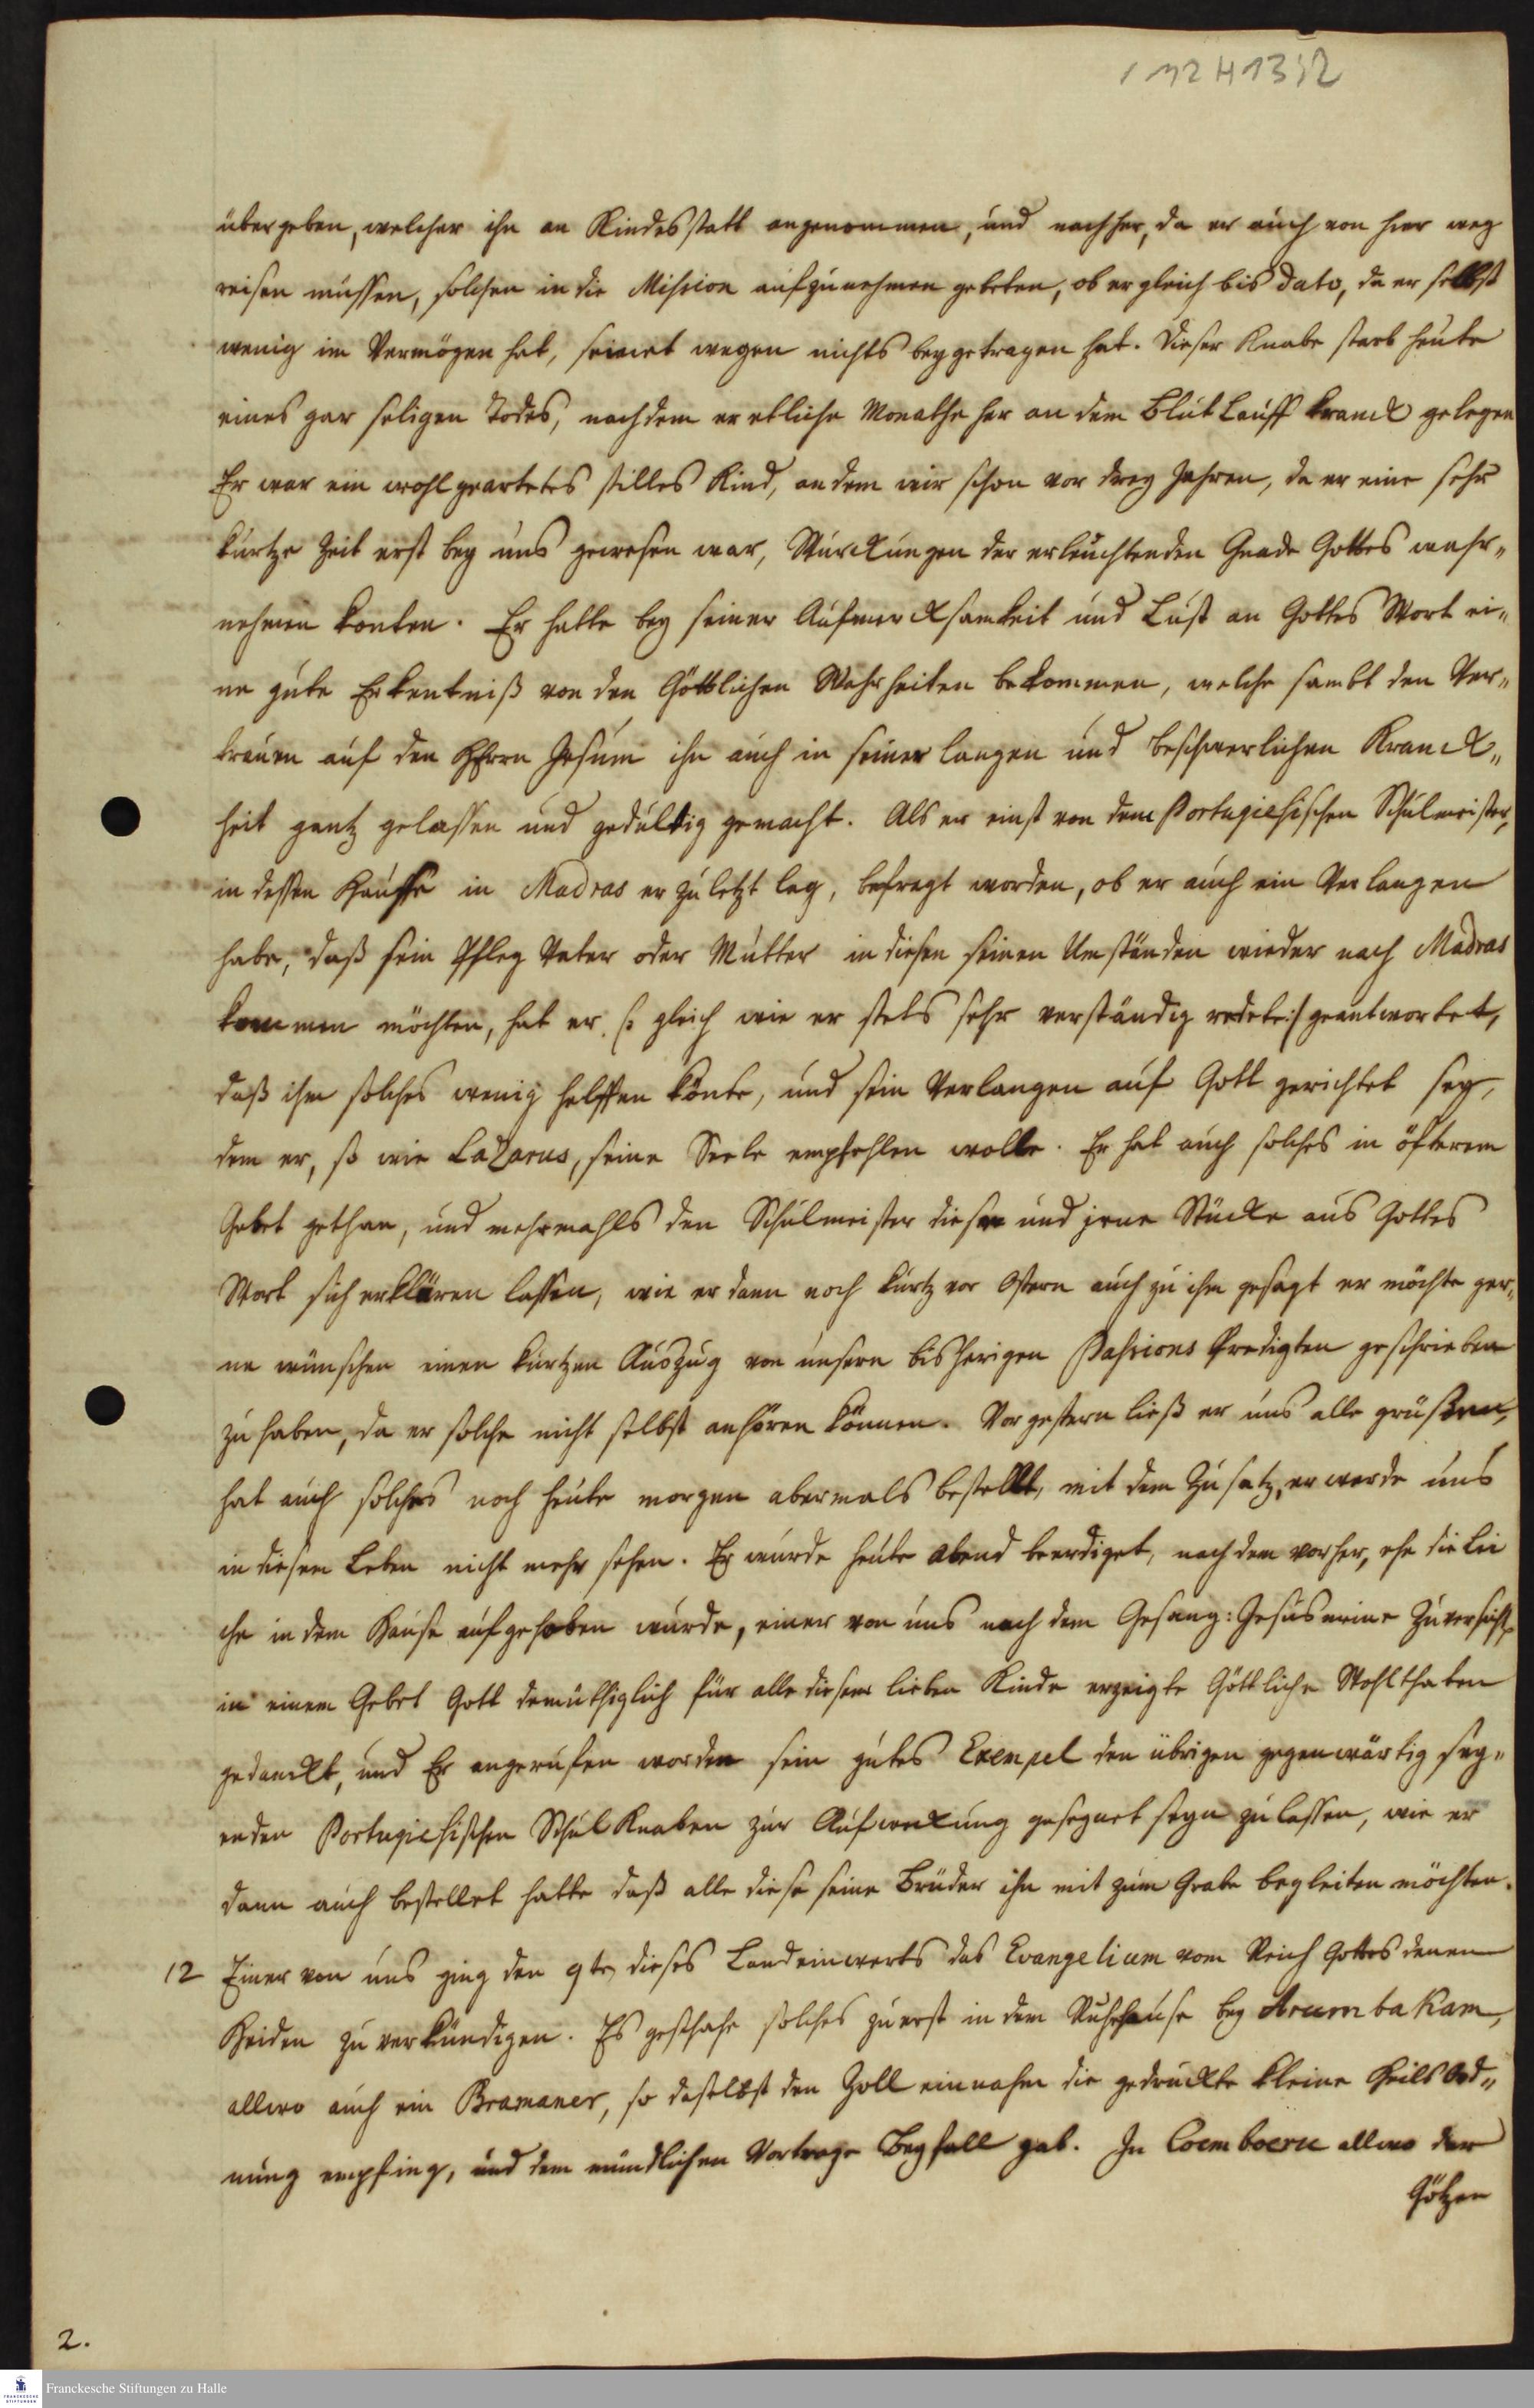 1 M2 H 13 : 2
übergeben, welcher ihn an Kindesstatt angenommen, und nachher, da er auch von hier weg
reisen müssen, solchen in die Mission aufzunehmen gebeten, ob er gleich bis dato, da er selbst
wenig im Vermögen hat, seinet wegen nichts beygetragen hat. Dieser Knabe starb heute
eines gar seligen Todes, nachdem er etliche Monathe her an dem Blut Lauff kranck gelegen
Er war ein wohlgeartetes stilles Kind, an dem wir schon vor drey Jahren, da er eine sehr
kurtze Zeit erst bey uns gewesen war, Würckungen der erleuchtenden Gnade Gottes wahr„
nehmen konten. Er hatte bey seiner Aufmercksamkeit und Lust an Gottes Wort ei„
ne gute Erkentniß von den Göttlichen Wahrheiten bekommen, welche sambt den Ver„
trauen auf den HErrn Jesum ihn auch in seiner langen und beschwerlichen Kranck„
heit gantz gelassen und gedultig gemacht. Als er einst von dem Portugiesischen Schulmeister,
in dessen Hausse in Madras er zuletzt lag, befragt worden, ob er auch ein Verlangen
habe, daß sein Pfleg Vater oder Mutter in diesen seinen Umständen wieder nach Madras
kommen möchten, hat er (: gleich wie er stets sehr verständig redete:) geantwortet,
daß ihm solches wenig helffen könte, und sein Verlangen auf Gott gerichtet sey,
dem er, so wie Lazarus, seine Seele empfehlen wolle. Er hat auch solches in öfterem
Gebet gethan, und mehrmahls den Schulmeister diese und jene Stücke aus Gottes
Wort sich erklären lassen, wie er dann noch kurtz vor Ostern auch zu ihm gesagt er möchte ger„
ne wünschen einen kurtzen Auszug von unsern bisherigen Passions Predigten geschrieben
zu haben, da er solche nicht selbst anhören können. Vorgestern ließ er uns alle grüßen,
hat auch solches noch heute morgen abermals bestellt, mit dem Zusatz, er werde uns
in diesem Leben nicht mehr sehen. Er wurde heute abend beerdiget, nachdem vorher, ehe die Lei
che in dem Hause aufgehoben wurde, einer von uns nach dem Gesang: Jesus meine Zuversicht,
in einem Gebet Gott demüthiglich für alle diesem lieben Kinde erzeigte Göttliche Wohlthaten
gedanckt, und Er angerufen worden sein gutes Exempel den übrigen gegenwärtig sey„
enden Portugiesischen Schul Knaben zur Aufweckung gesegnet seyn zu lassen, wie er
dann auch bestellet hatte daß alle diese seine Brüder ihn mit zum Grabe begleiten möchten.
12 Einer von uns ging den 9ten dieses Landeinwerts das Evangelium vom Reich Gottes denen
Heiden zu verkündigen. Es geschahe solches zuerst in dem Ruhehause bey Arumbakam,
allwo auch ein Bramaner, so daselbst den Zoll einnahm die gedruckte kleine Heils Ord„
nung empfing, und dem mündlichen Vortrage Beyfall gab. In Coemboeru allwo der
Götzen
2.
Franckesche Stiftungen zu Halle